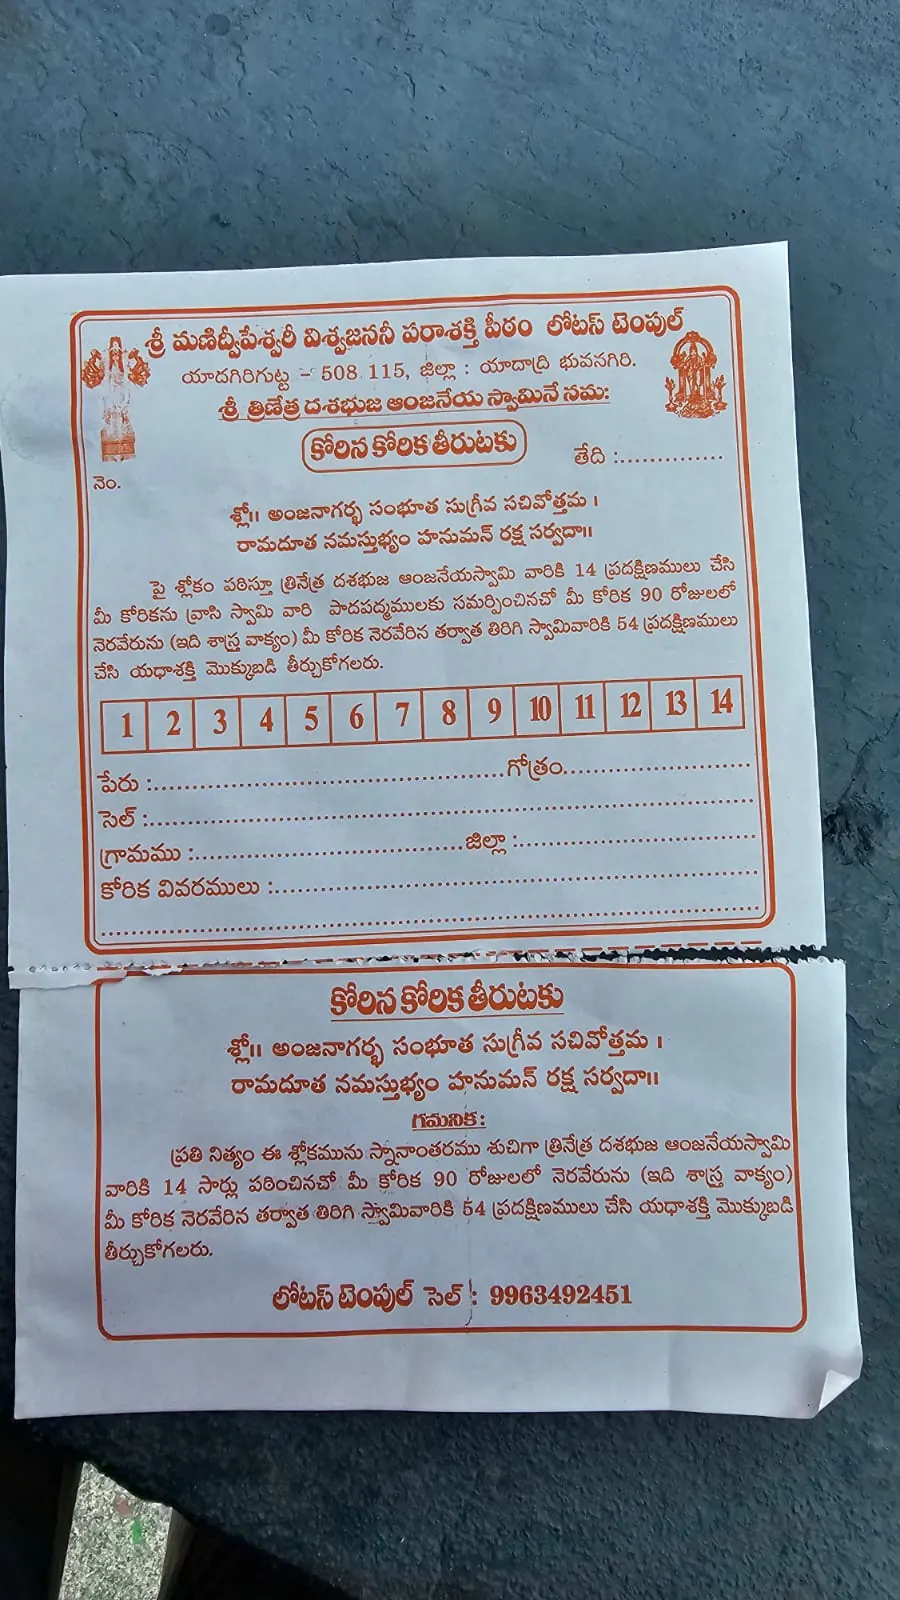 శ్రీ మణిద్వీపేశ్వరీ విశ్వజననీ పరాశక్తి పీఠం లోటస్ టెంపుల్
యాదగిరిగుట్ట - 508 115, జిల్లా : యాదాద్రి భువనగిరి.
శ్రీ త్రినేత్ర దశభుజ ఆంజనేయ స్వామినే నమః
కోరిన కోరిక తీరుటకు
తేది :..............
నెం.
శ్లో॥ అంజనాగర్భ సంభూత సుగ్రీవ సచివోత్తమ ।
రామదూత నమస్తుభ్యం హనుమన్ రక్ష సర్వదా॥
పై శ్లోకం పఠిస్తూ త్రినేత్ర దశభుజ ఆంజనేయస్వామి వారికి 14 ప్రదక్షిణములు చేసి
మీ కోరికను వ్రాసి స్వామి వారి పాదపద్మములకు సమర్పించినచో మీ కోరిక 90 రోజులలో
నెరవేరును (ఇది శాస్త్ర వాక్యం) మీ కోరిక నెరవేరిన తర్వాత తిరిగి స్వామివారికి 54 ప్రదక్షిణములు
చేసి యధాశక్తి మొక్కుబడి తీర్చుకోగలరు.
1 2 3 4 5 6 7 8 9 10 11 12 13 14
పేరు :.................................................గోత్రం..........................
సెల్ :..........................................................................................
గ్రామము :.....................................జిల్లా :.................................
కోరిక వివరములు :...................................................................
..................................................................................................
కోరిన కోరిక తీరుటకు
శ్లో॥ అంజనాగర్భ సంభూత సుగ్రీవ సచివోత్తమ ।
రామదూత నమస్తుభ్యం హనుమన్ రక్ష సర్వదా॥
గమనిక:
ప్రతి నిత్యం ఈ శ్లోకమును స్నానాంతరము శుచిగా త్రినేత్ర దశభుజ ఆంజనేయస్వామి
వారికి 14 సార్లు పఠించినచో మీ కోరిక 90 రోజులలో నెరవేరును (ఇది శాస్త్ర వాక్యం)
మీ కోరిక నెరవేరిన తర్వాత తిరిగి స్వామివారికి 54 ప్రదక్షిణములు చేసి యధాశక్తి మొక్కుబడి
తీర్చుకోగలరు.
లోటస్ టెంపుల్ సెల్ : 9963492451